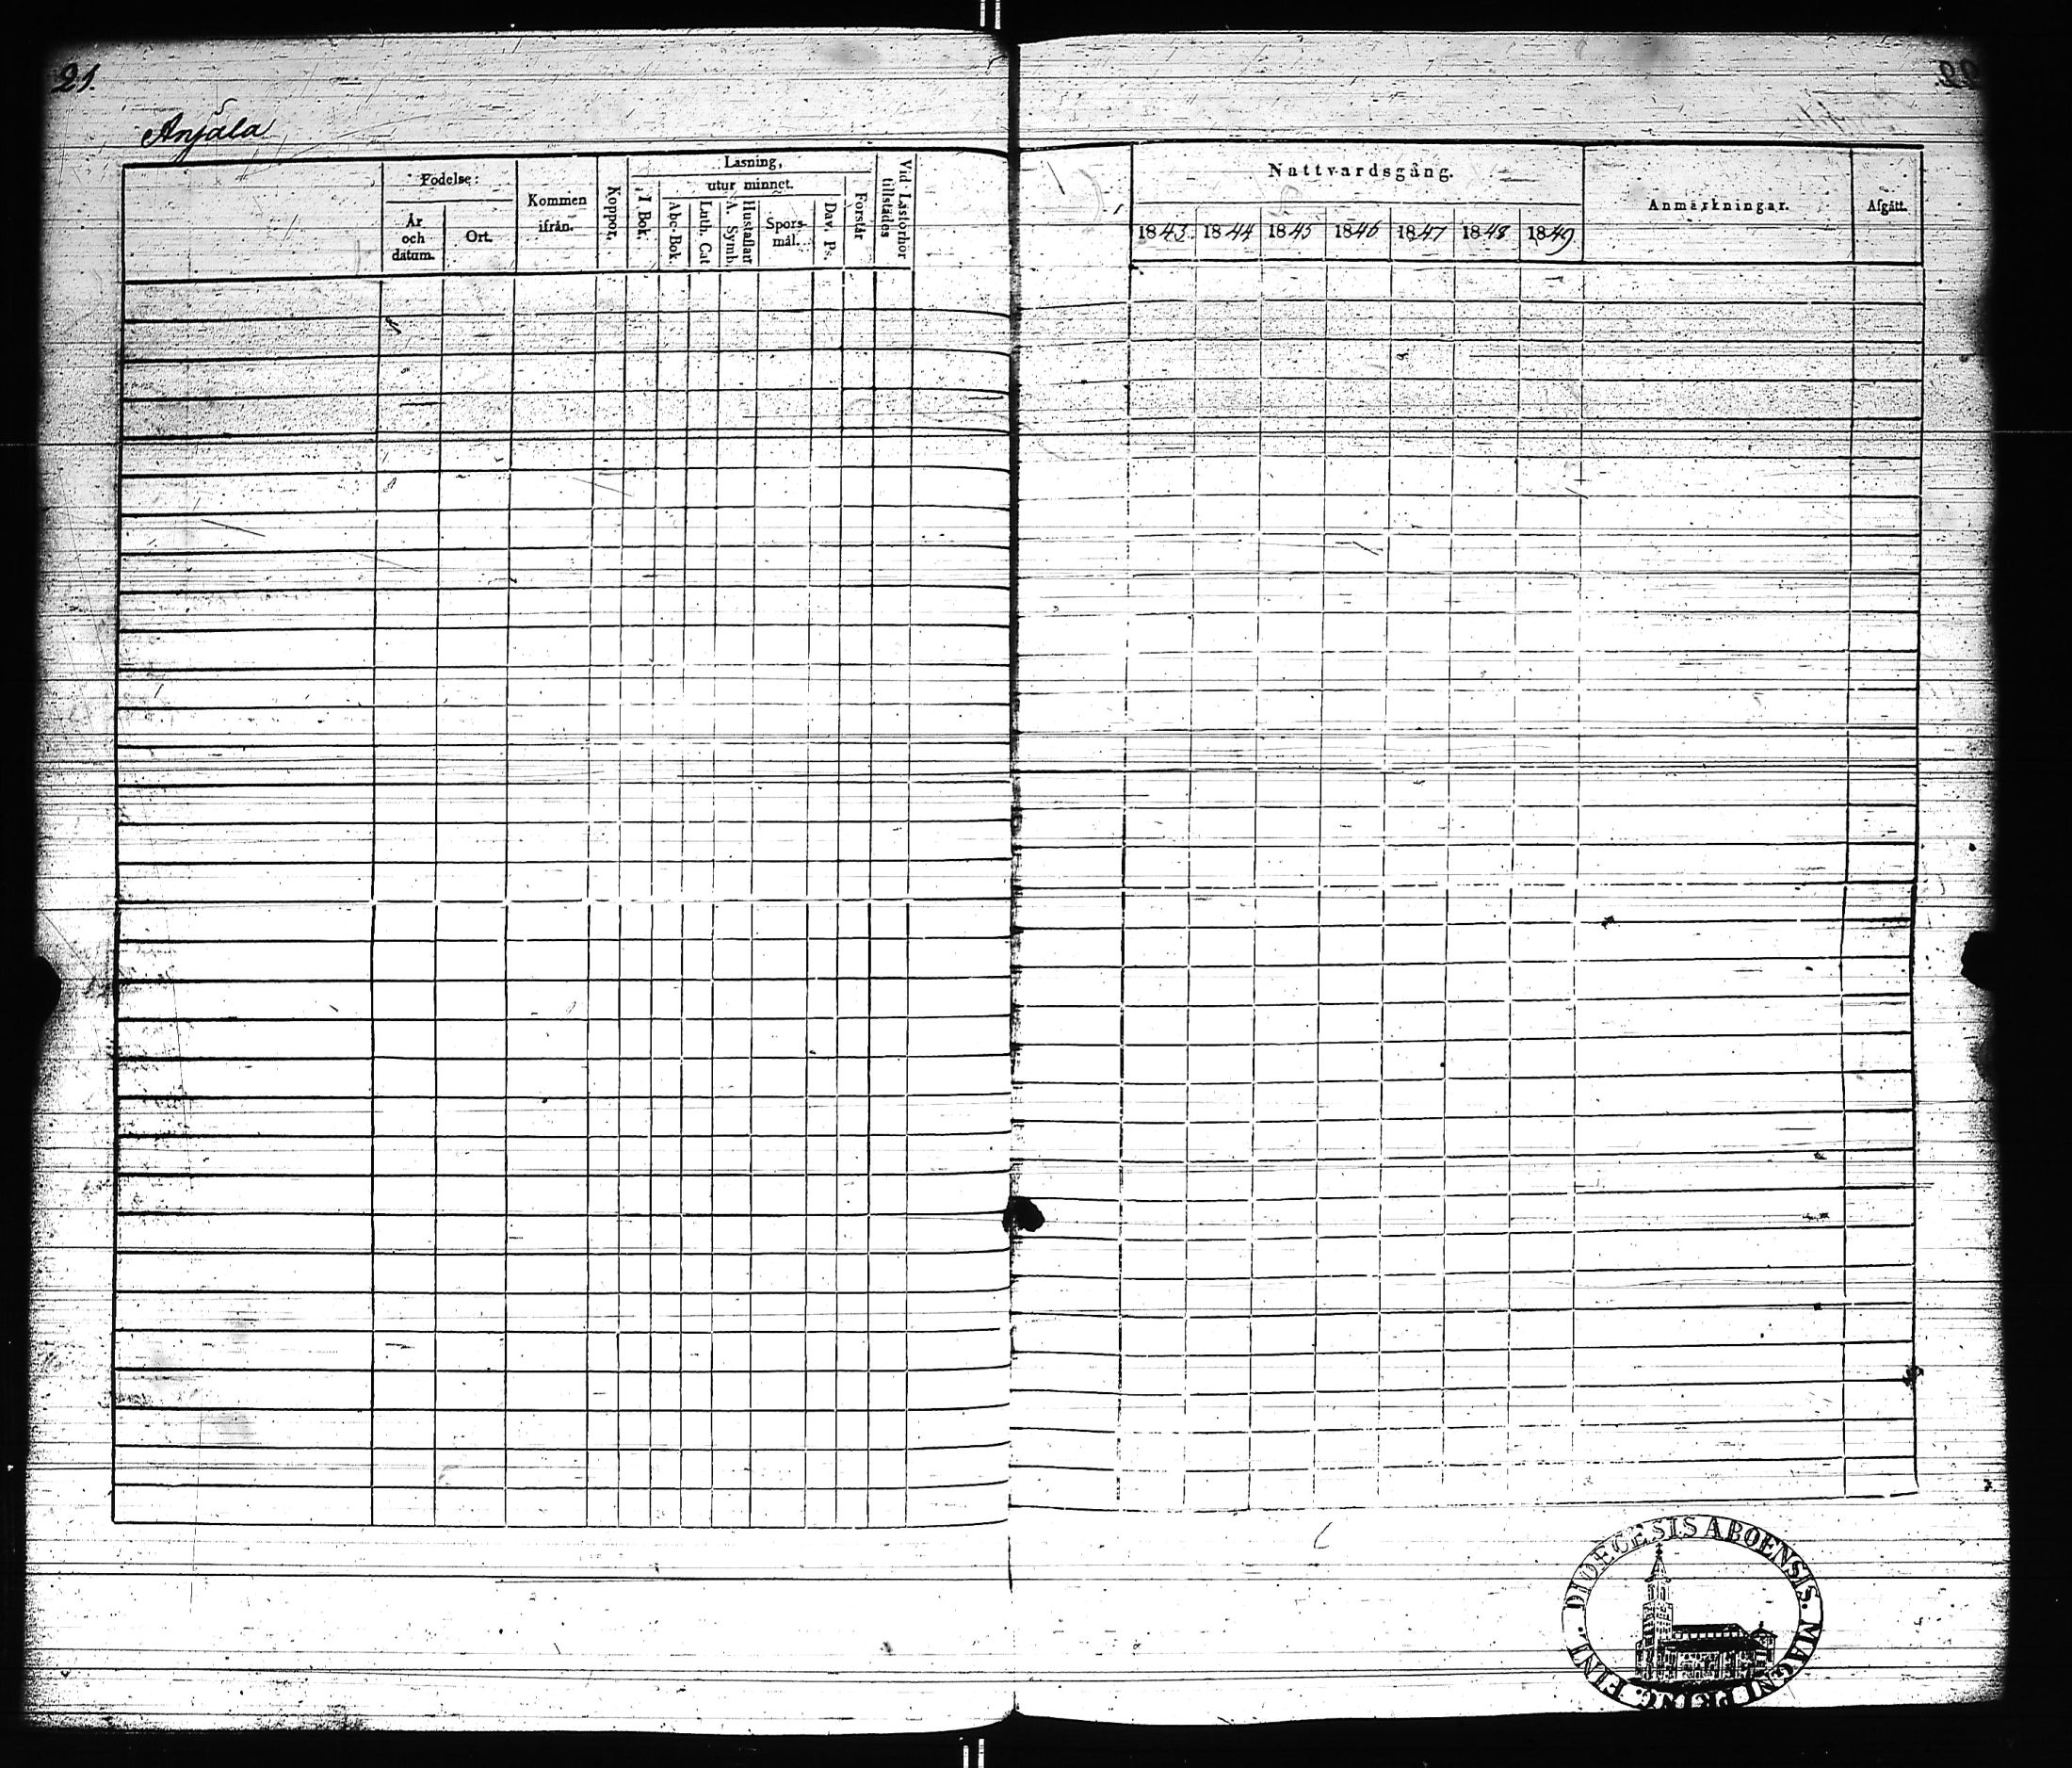 21.
Anjala
Födelse:
År
och
datum.
Ort.
Kommen
ifrån.
Koppor.
Läsning,
I Bok.
utur minnet.
Abc-Bok.
Luth. Cat
A. Symb.
Hustaflanr
Spörs-
mål.
Dav. Ps.
Förstår
Vid Läsförhör
tillstädes
Nattvardsgång.
1843
1844
1845
1846
1847
1848
1849
Anmärkningar.
Afgått.
DIOECESIS ABOENSIS. MAGNI PRINC. FINL.